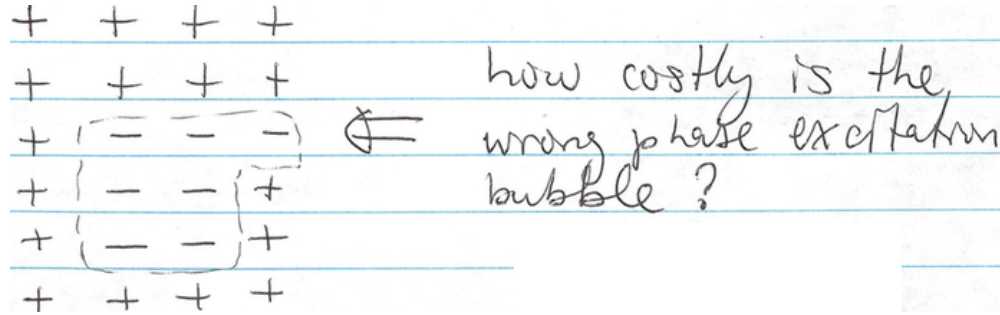 + + + +
+ + + + how costly is the
+ - - - ⇐ wrong phase excitation
+ - - + bubble ?
+ - - +
+ + + +